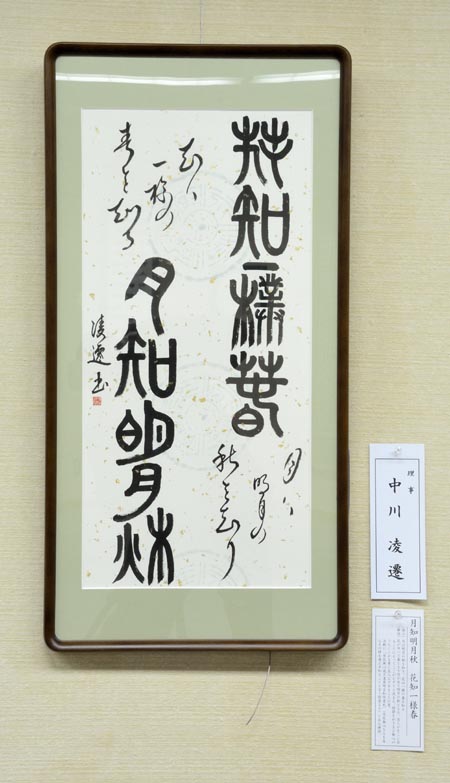 花知一樣春
月は
明月の
秋を知り
花は
一様の
春を知る
月知明月秋
凌遷書
理事
中川 凌遷
月知明月秋 花知一様春